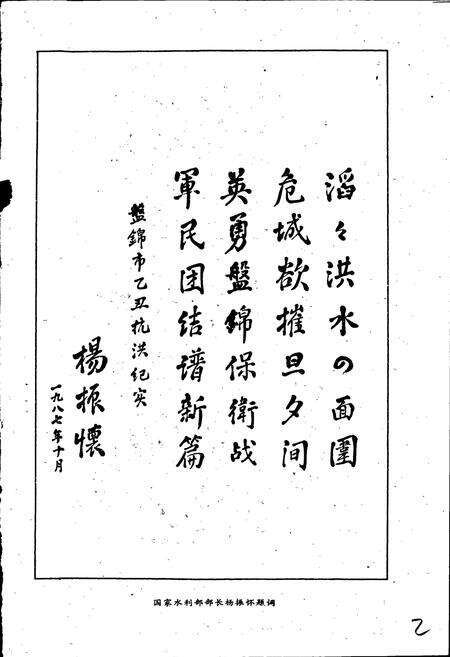 滔々洪水四面圍
危城欲摧旦夕间
英勇盤錦保衛战
軍民团结谱新篇
盤錦市乙丑抗洪纪实
楊振懷
一九八七年十月
国家水利部部长杨振怀题词
2